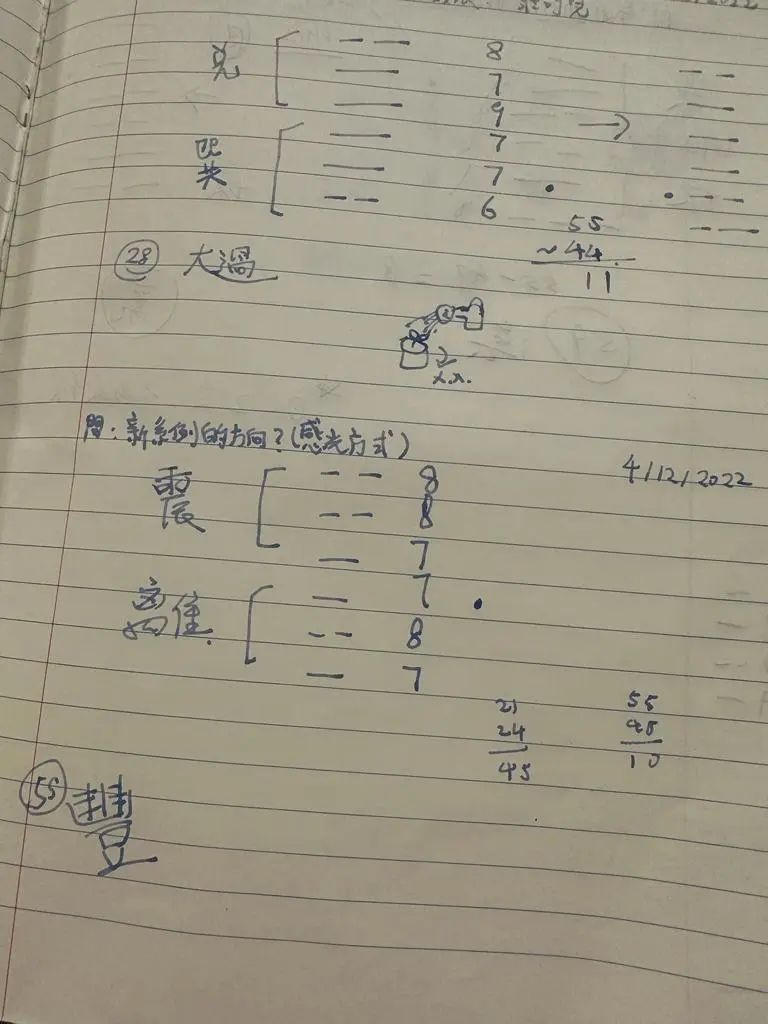 兌 8
7
9 →
7
巽 7
6
55
~44
11
28 大過
x.x.
問: 新系例的方向? (感光方式)
4/12/2022
震 8
8
7
7
離 8
7
21 55
24 45
45 10
55 豐